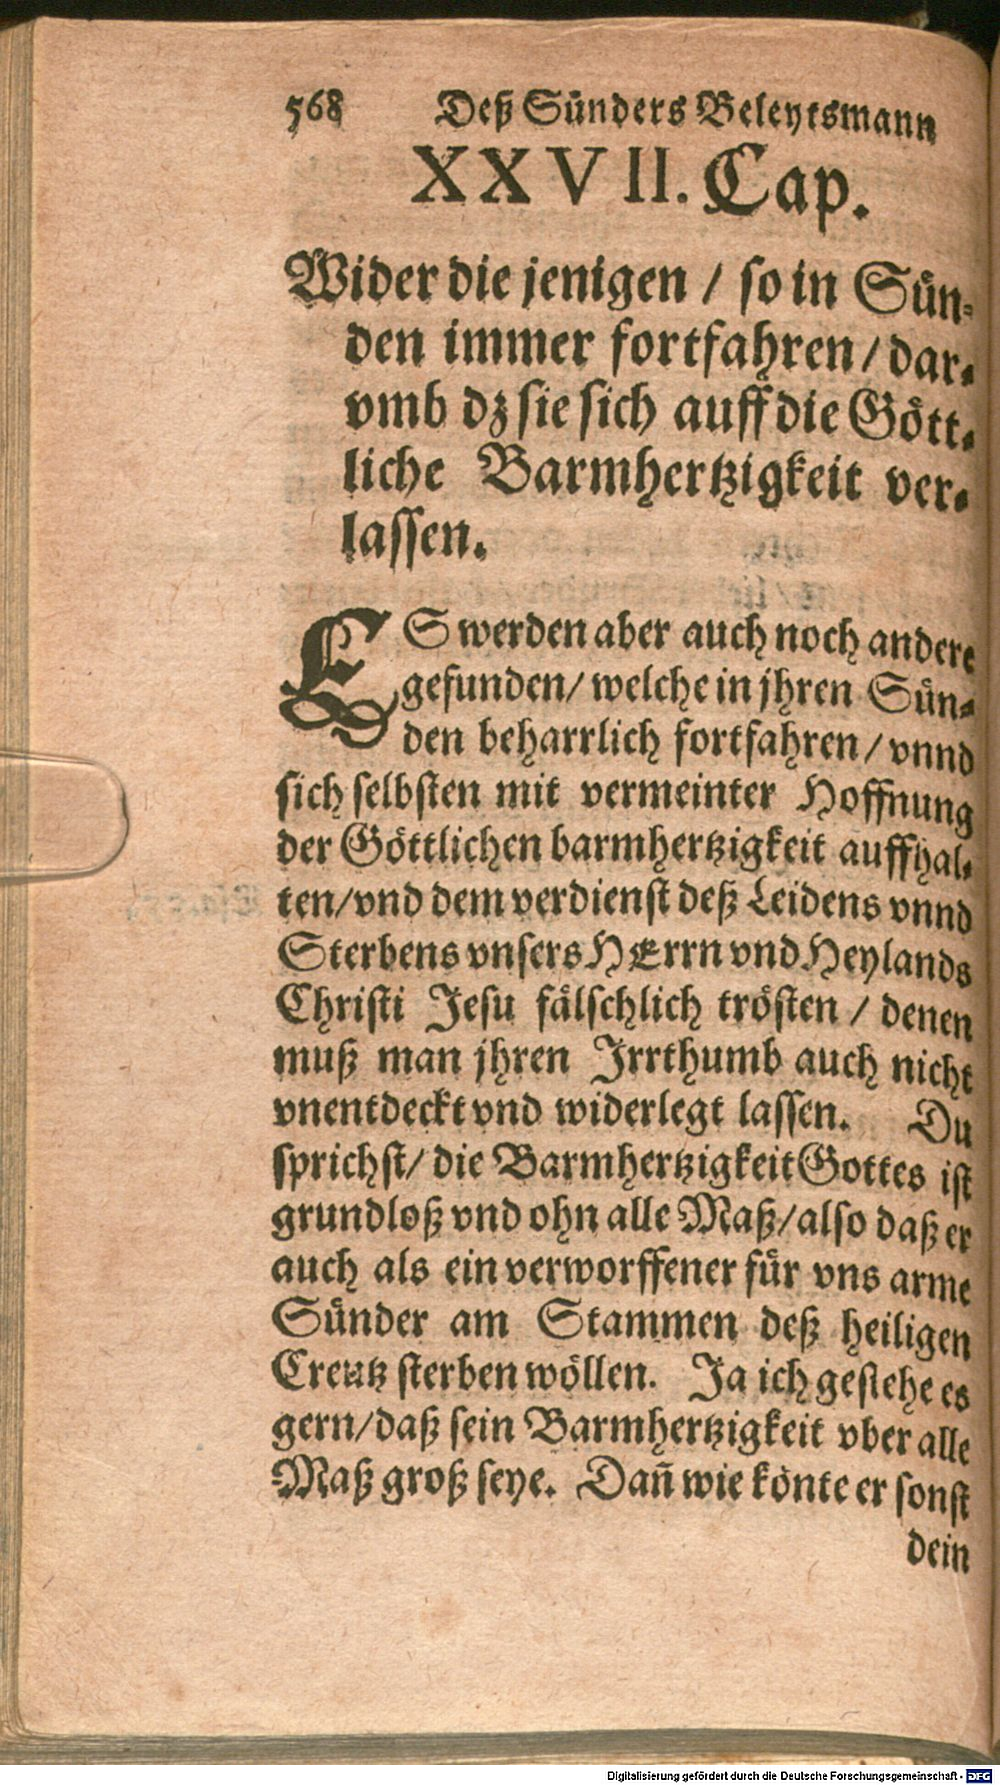 568 Deß Sünders Beleytsmann
XXVII. Cap.
Wider die jenigen / so in Sün-
den immer fortfahren / dar-
vmb dz sie sich auff die Gött-
liche Barmhertzigkeit ver-
lassen.
ES werden aber auch noch andere
gefunden / welche in jhren Sün-
den beharrlich fortfahren / vnnd
sich selbsten mit vermeinter Hoffnung
der Göttlichen barmhertzigkeit auffhal-
ten / vnd dem verdienst deß Leidens vnnd
Sterbens vnsers HErrn vnd Heylands
Christi Jesu fälschlich trösten / denen
muß man jhren Irrthumb auch nicht
vnentdeckt vnd widerlegt lassen. Du
sprichst / die Barmhertzigkeit Gottes ist
grundloß vnd ohn alle Maß / also daß er
auch als ein verworffener für vns arme
Sünder am Stammen deß heiligen
Creutz sterben wöllen. Ja ich gestehe es
gern / daß sein Barmhertzigkeit vber alle
Maß groß seye. Dañ wie könte er sonst
dein
Digitalisierung gefördert durch die Deutsche Forschungsgemeinschaft - DFG